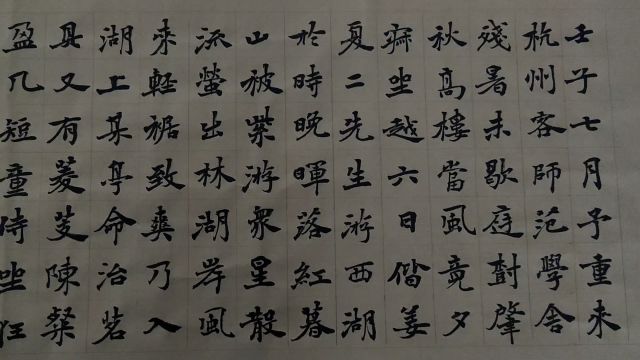 壬子七月予重來
杭州客師范學舍
殘暑未歇庭尌肇
秋高樓當風竟夕
寂坐越六日偕姜
夏二先生游西湖
於時晚暉落紅暮
山被紫游衆星散
流螢出林湖岸風
來輕裾致爽乃入
湖上某亭命治茗
具又有菱芰陳粲
盈几短童侍坐狂